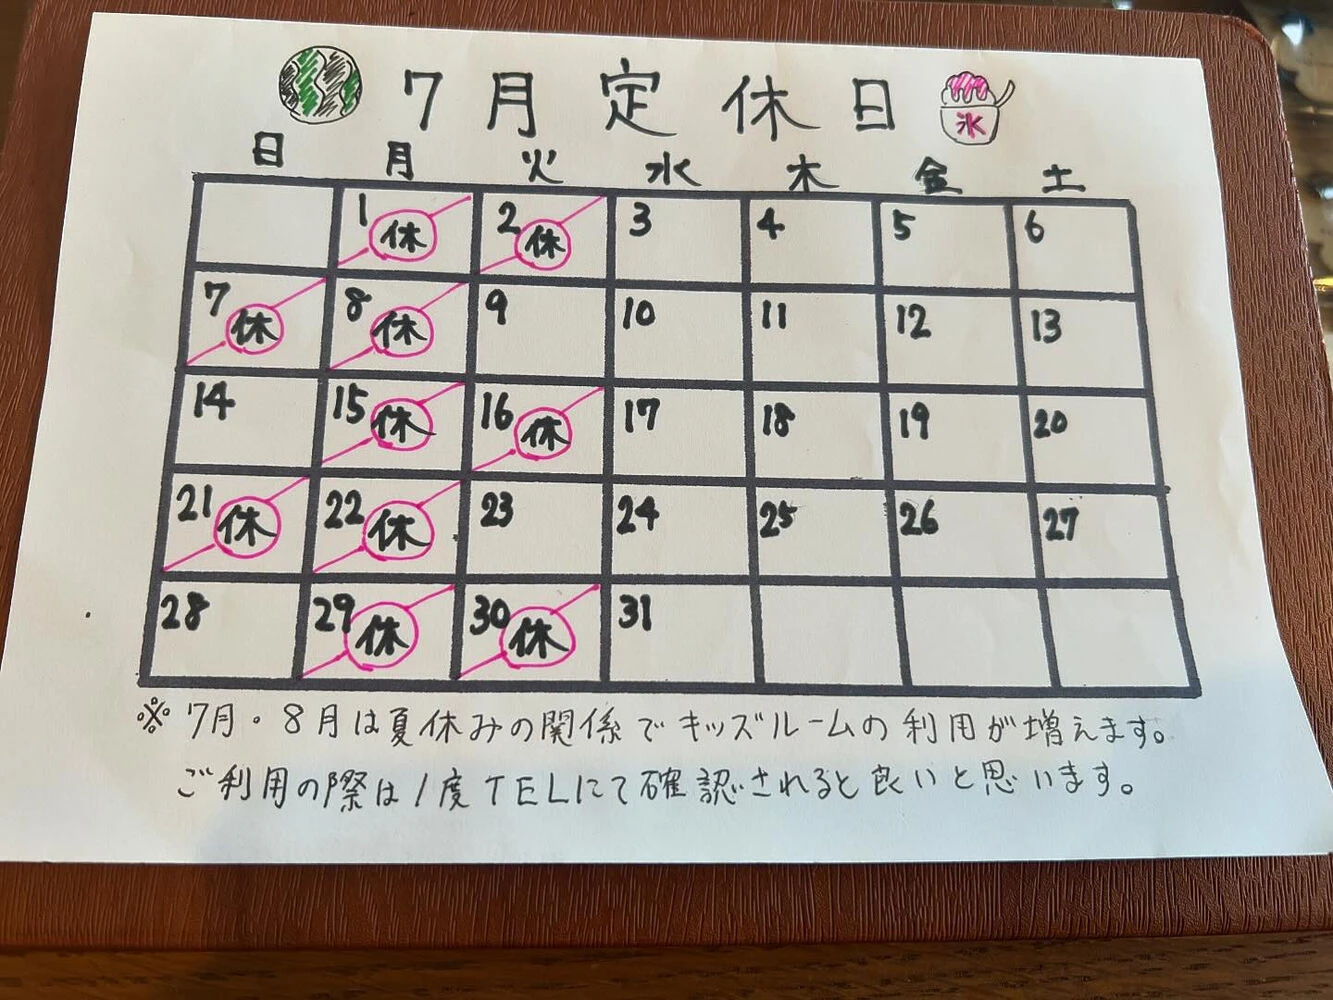 7月定休日
氷
日 月 火 水 木 金 土
1 休 2 休 3 4 5 6
7 休 8 休 9 10 11 12 13
14 15 休 16 休 17 18 19 20
21 休 22 休 23 24 25 26 27
28 29 休 30 休 31
※7月・8月は夏休みの関係でキッズルームの利用が増えます。
ご利用の際は1度TELにて確認されると良いと思います。